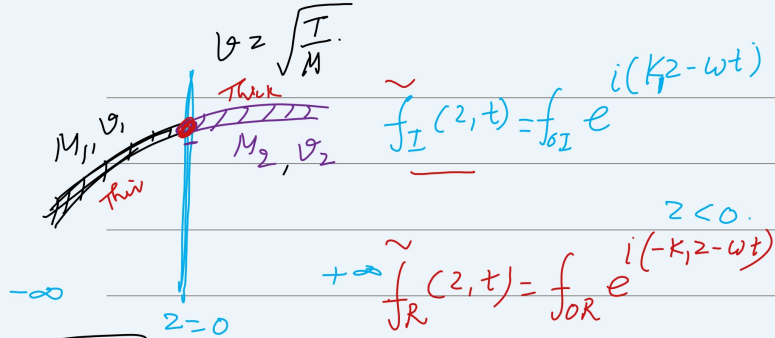 v = √(T/μ).
Thick
μ₁, v₁
Thin
μ₂, v₂
f̃_I (z, t) = f_{0I} e^{i(k₁z - ωt)}
z < 0.
f̃_R (z, t) = f_{0R} e^{i(-k₁z - ωt)}
-∞
+∞
z = 0